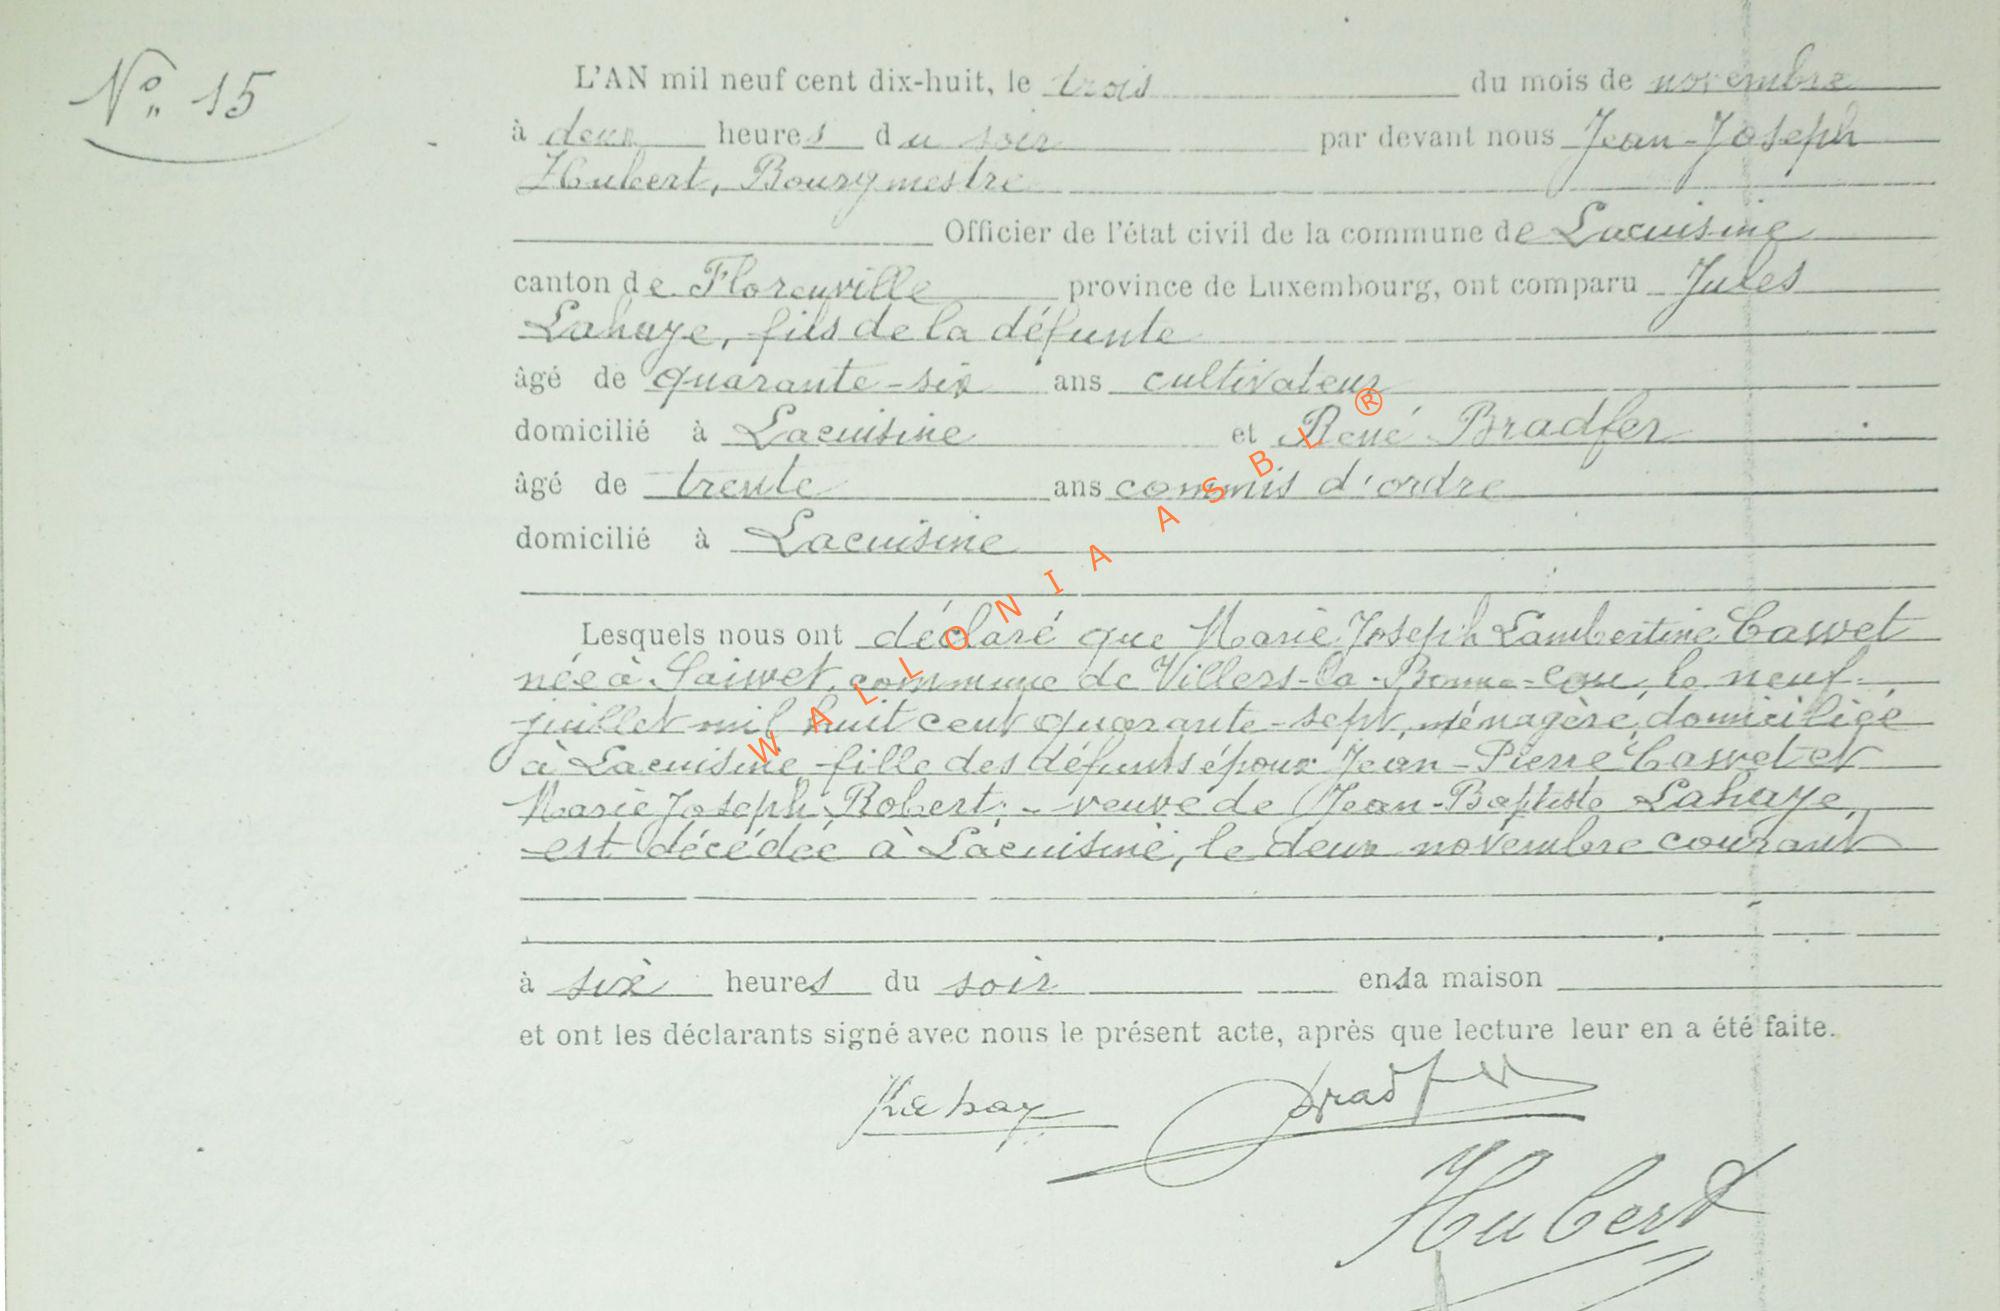 N° 15
L'AN mil neuf cent dix-huit, le trois du mois de novembre
à deux heures du soir par devant nous Jean-Joseph
Hubert, Bourgmestre
Officier de l'état civil de la commune de Lacuisine
canton de Florenville province de Luxembourg, ont comparu Jules
Lahaye, fils de la défunte
âgé de quarante-six ans cultivateur
domicilié à Lacuisine et René Bradfer
âgé de trente ans commis d'ordre
domicilié à Lacuisine
Lesquels nous ont déclaré que Marie Joseph Lambertine Cawet
née à Sainvet, commune de Villers-la-Bonne-Eau, le neuf
juillet mil huit cent quarante-sept, ménagère, domiciliée
à Lacuisine, fille des défunts époux Jean-Pierre Cawet et
Marie Joseph Robert, - veuve de Jean-Baptiste Lahaye,
est décédée à Lacuisine, le deux novembre courant
à six heures du soir en sa maison
et ont les déclarants signé avec nous le présent acte, après que lecture leur en a été faite.
Lahaye Bradfer
Hubert
WALLONIA ASBL ®